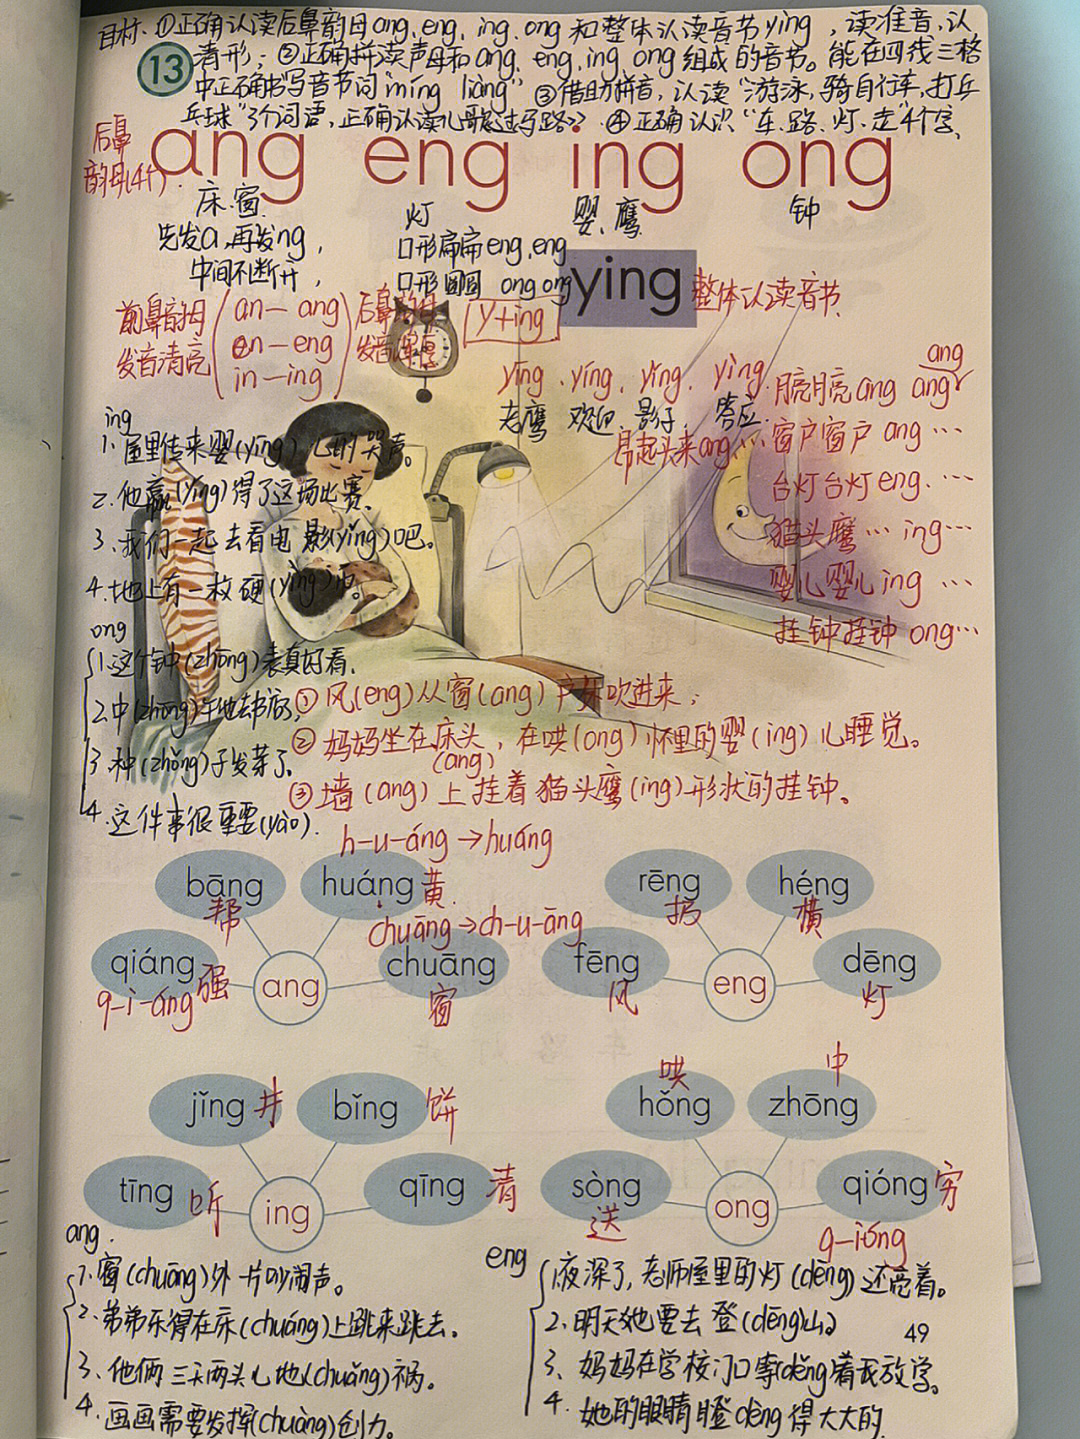 目标：①正确认读后鼻韵母ang、eng、ing、ong 和整体认读音节ying，读准音、认
13
清形；②正确拼读声母和ang、eng、ing ong 组成的音节。能在四线三格
中正确书写音节词"míng liàng" ③借助拼音，认读"游泳，骑自行车，打乒
乓球"3个词语，正确认读儿歌《过马路》 ④正确认识"车、路、灯、走"4个字、
后鼻
韵母(4个).
ang eng ing ong
床、窗
灯
婴、鹰
钟
先发a，再发ng，
中间不断开，
口形扁扁eng、eng
口形圆圆 ong ong
ying
整体认读音节、
y+ing
前鼻韵母
发音清亮
an — ang
en — eng
in — ing
后鼻韵母
yīng、yíng、yǐng、yìng
老鹰 欢迎 影子 答应
ang
月亮月亮 ang ang
昂起头来ang…
窗户窗户 ang …
台灯台灯 eng …
猫头鹰 … ing …
婴儿婴儿 ing …
挂钟挂钟 ong …
ing
1、屋里传来婴(yīng)儿的哭声。
2、他赢(yíng)得了这场比赛、
3、我们一起去看电影(yǐng)吧。
4、地上有一枚硬(yìng)币。
ong
1、这个钟(zhōng)表真好看、
3、种(zhǒng)子发芽了、
4、这件事很重要(yào).
①风(eng)从窗(ang)户外吹进来；
②妈妈坐在床头，在哄(ong)怀里的婴(ing)儿睡觉。
(ang)
③墙(ang)上挂着猫头鹰(ing)形状的挂钟。
h-u-áng→huáng
bāng
帮
huáng 黄
chuāng→ch-u-āng
qiáng 强
q-i-áng
ang
chuāng
窗
rēng
扔
héng
横
fēng
风
eng
dēng
灯
jǐng 井
bǐng 饼
tīng 听
ing
qīng 清
哄
hǒng
中
zhōng
sòng
送
ong
qióng 穷
q-ióng
ang.
1、窗(chuāng)外一片吵闹声。
2、弟弟乐得在床(chuáng)上跳来跳去。
3、他俩三天两头儿地(chuǎng)祸。
4、画画需要发挥(chuàng)创力。
eng
1、夜深了，老师屋里的灯(dēng)还亮着。
2、明天她要去登(dēng)山
3、妈妈在学校门口等(děng)着我放学。
4、她的眼睛瞪dèng得大大的
49